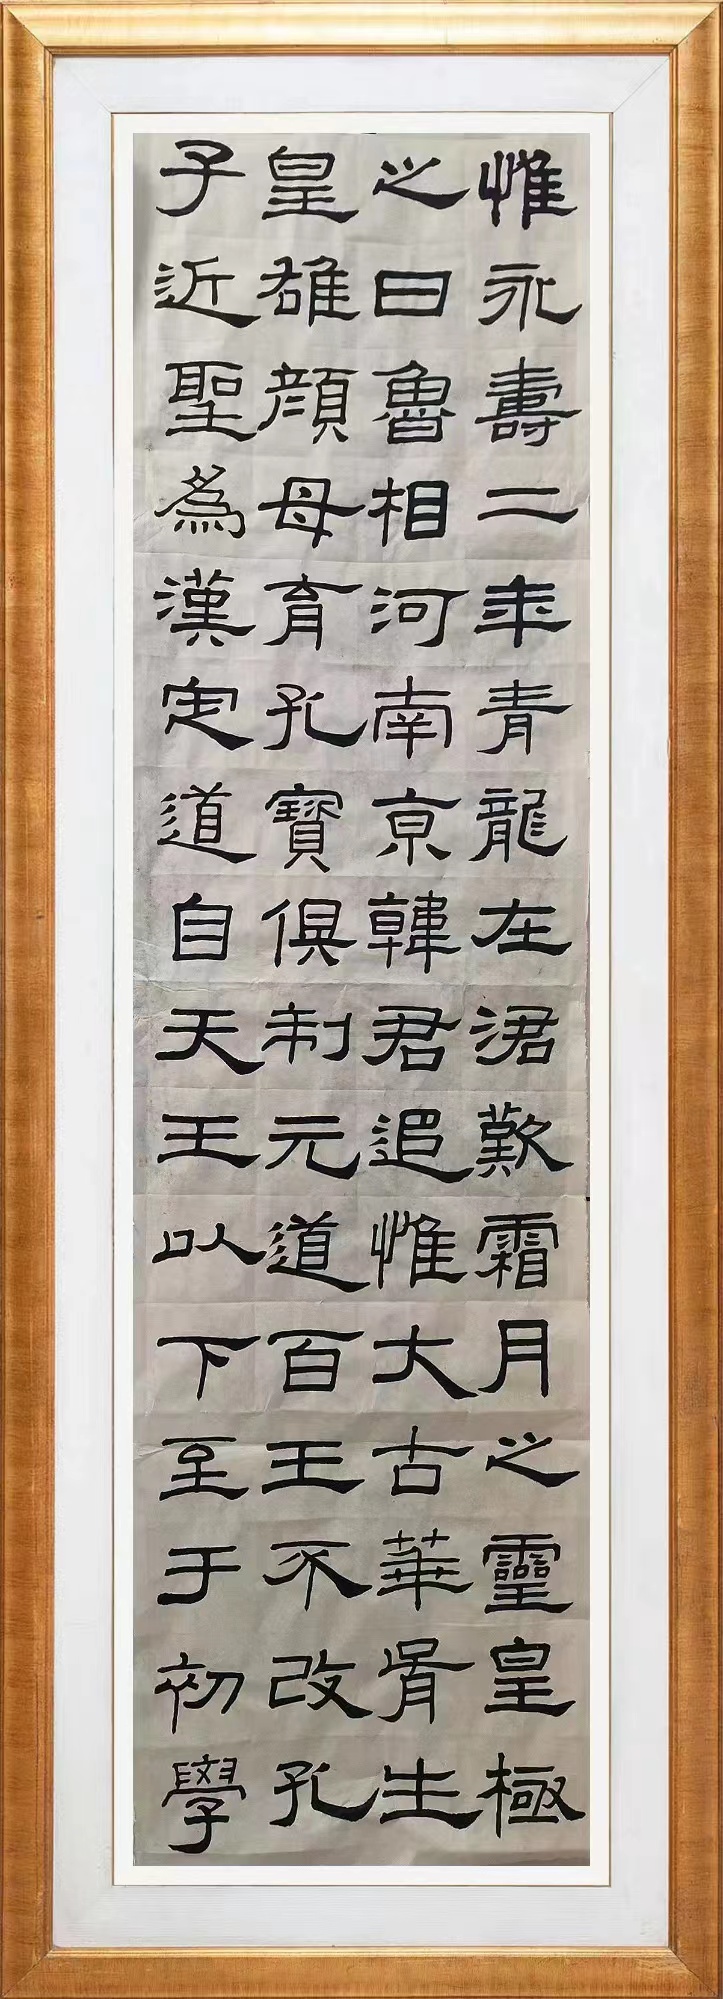 惟永壽二年青龍在涒歎霜月之靈皇極
之日魯相河南京韓君追惟大古華胥生
皇雄顏母育孔寶俱制元道百王不改孔
子近聖爲漢定道自天王以下至于初學